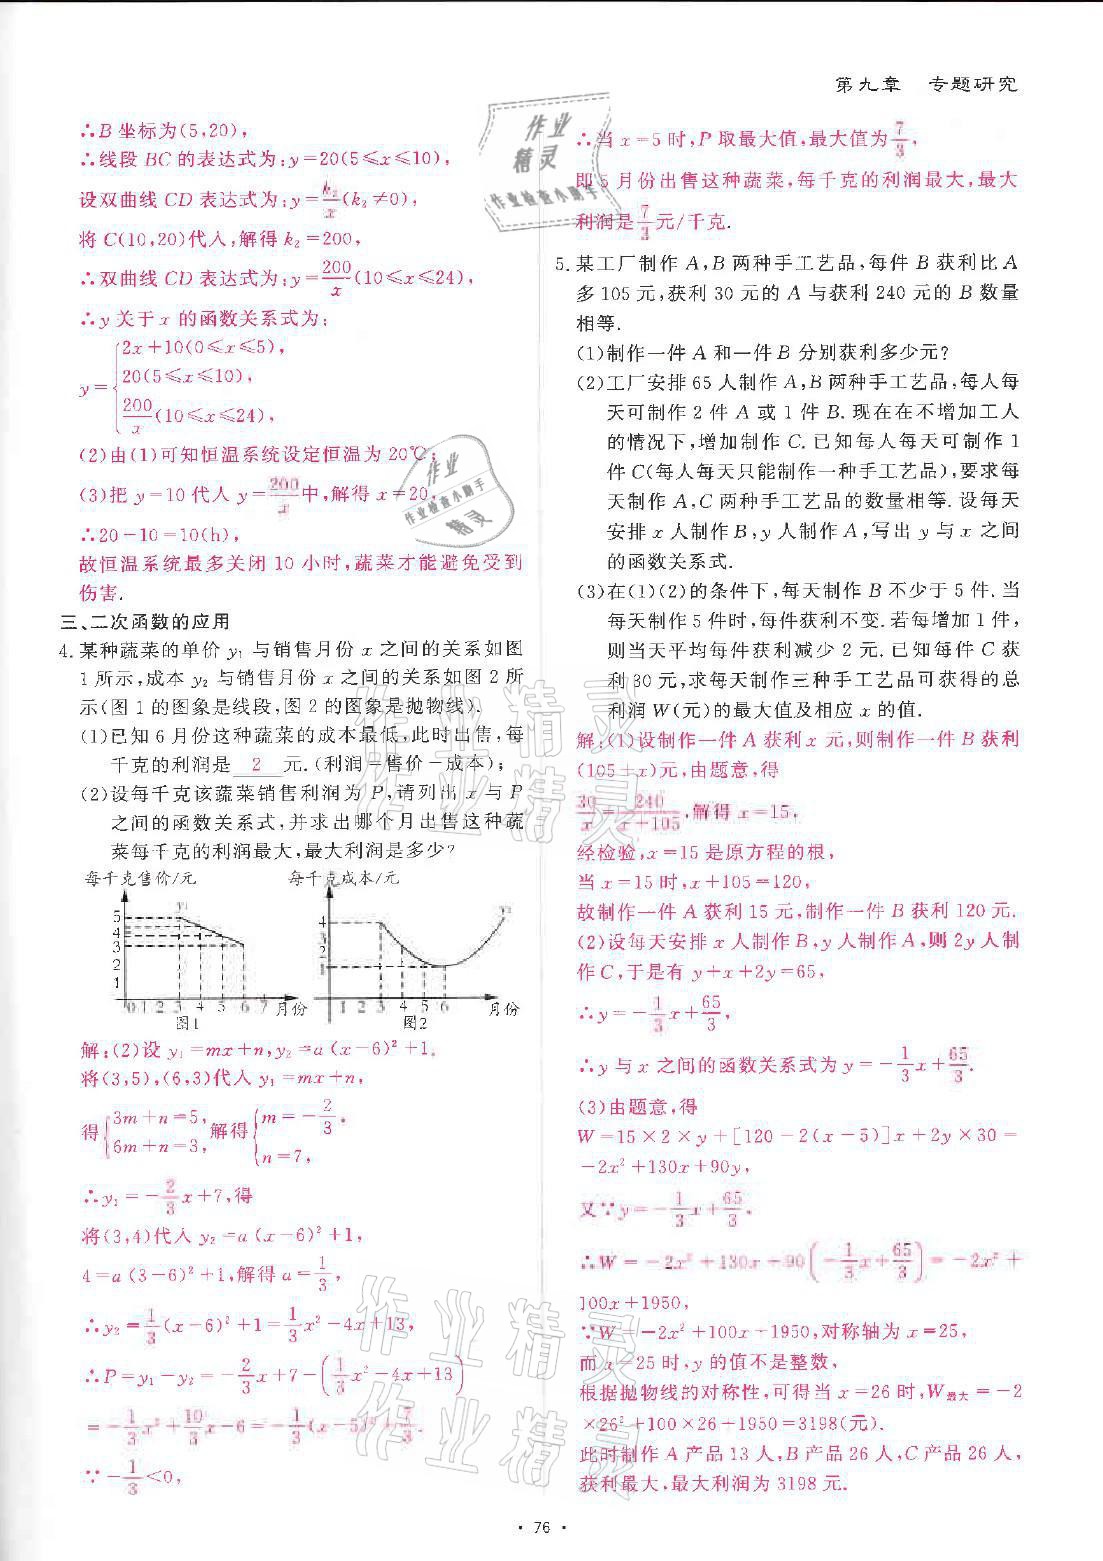 第九章　专题研究
∴B 坐标为(5,20),
∴线段 BC 的表达式为:y=20(5≤x≤10),
设双曲线 CD 表达式为:y=k₂/x(k₂≠0),
将 C(10,20)代人,解得 k₂=200,
∴双曲线 CD 表达式为:y=200/x(10≤x≤24),
∴y 关于 x 的函数关系式为:
y={2x+10(0≤x≤5),
20(5≤x≤10),
200/x(10≤x≤24),
(2)由(1)可知恒温系统设定恒温为 20℃;
(3)把 y=10 代人 y=200/x中,解得 x=20,
∴20-10=10(h),
故恒温系统最多关闭 10 小时,蔬菜才能避免受到
伤害.
三、二次函数的应用
4.某种蔬菜的单价 y₁ 与销售月份 x 之间的关系如图
1 所示,成本 y₂ 与销售月份 x 之间的关系如图 2 所
示(图 1 的图象是线段,图 2 的图象是抛物线).
(1)已知 6 月份这种蔬菜的成本最低,此时出售,每
千克的利润是 2 元.(利润=售价-成本);
(2)设每千克该蔬菜销售利润为 P,请列出 x 与 P
之间的函数关系式,并求出哪个月出售这种蔬
菜每千克的利润最大,最大利润是多少?
每千克售价/元　每千克成本/元
5 y₁
4
3
2
1
0 1 2 3 4 5 6 7 月份
图1
4 y₂
3
2
1
1 2 3 4 5 6 月份
图2
解:(2)设 y₁=mx+n,y₂=a(x-6)²+1.
将(3,5),(6,3)代人 y₁=mx+n,
得{3m+n=5, 6m+n=3, 解得{m=-2/3. n=7,
∴y₁=-2/3x+7,得
将(3,4)代人 y₂=a(x-6)²+1,
4=a(3-6)²+1,解得 a=1/3,
∴y₂=1/3(x-6)²+1=1/3x²-4x+13,
∴P=y₁-y₂=-2/3x+7-(1/3x²-4x+13)
=-1/3x²+10/3x-6=-1/3(x-5)²+7/3.
∵-1/3<0,
∴当 x=5 时,P 取最大值,最大值为7/3,
即 5 月份出售这种蔬菜,每千克的利润最大,最大
利润是7/3元/千克.
5.某工厂制作 A,B 两种手工艺品,每件 B 获利比 A
多 105 元,获利 30 元的 A 与获利 240 元的 B 数量
相等.
(1)制作一件 A 和一件 B 分别获利多少元?
(2)工厂安排 65 人制作 A,B 两种手工艺品,每人每
天可制作 2 件 A 或 1 件 B.现在在不增加工人
的情况下,增加制作 C.已知每人每天可制作 1
件 C(每人每天只能制作一种手工艺品),要求每
天制作 A,C 两种手工艺品的数量相等.设每天
安排 x 人制作 B,y 人制作 A,写出 y 与 x 之间
的函数关系式.
(3)在(1)(2)的条件下,每天制作 B 不少于 5 件.当
每天制作 5 件时,每件获利不变.若每增加 1 件,
则当天平均每件获利减少 2 元.已知每件 C 获
利 30 元,求每天制作三种手工艺品可获得的总
利润 W(元)的最大值及相应 x 的值.
解:(1)设制作一件 A 获利 x 元,则制作一件 B 获利
(105+x)元,由题意,得
30/x=240/(x+105),解得 x=15,
经检验,x=15 是原方程的根,
当 x=15 时,x+105=120,
故制作一件 A 获利 15 元,制作一件 B 获利 120 元.
(2)设每天安排 x 人制作 B,y 人制作 A,则 2y 人制
作 C,于是有 y+x+2y=65,
∴y=-1/3x+65/3,
∴y 与 x 之间的函数关系式为 y=-1/3x+65/3.
(3)由题意,得
W=15×2×y+[120-2(x-5)]x+2y×30=
-2x²+130x+90y,
又∵y=-1/3x+65/3.
∴W=-2x²+130x+90(-1/3x+65/3)=-2x²+
100x+1950,
∵W=-2x²+100x+1950,对称轴为 x=25,
而 x=25 时,y 的值不是整数,
根据抛物线的对称性,可得当 x=26 时,W最大=-2
×26²+100×26+1950=3198(元).
此时制作 A 产品 13 人,B 产品 26 人,C 产品 26 人,
获利最大,最大利润为 3198 元.
· 76 ·
作业
精灵
作业检查小助手
作业
作业检查小助手
精灵
作业精灵
作业精灵
作业精灵
作业精灵